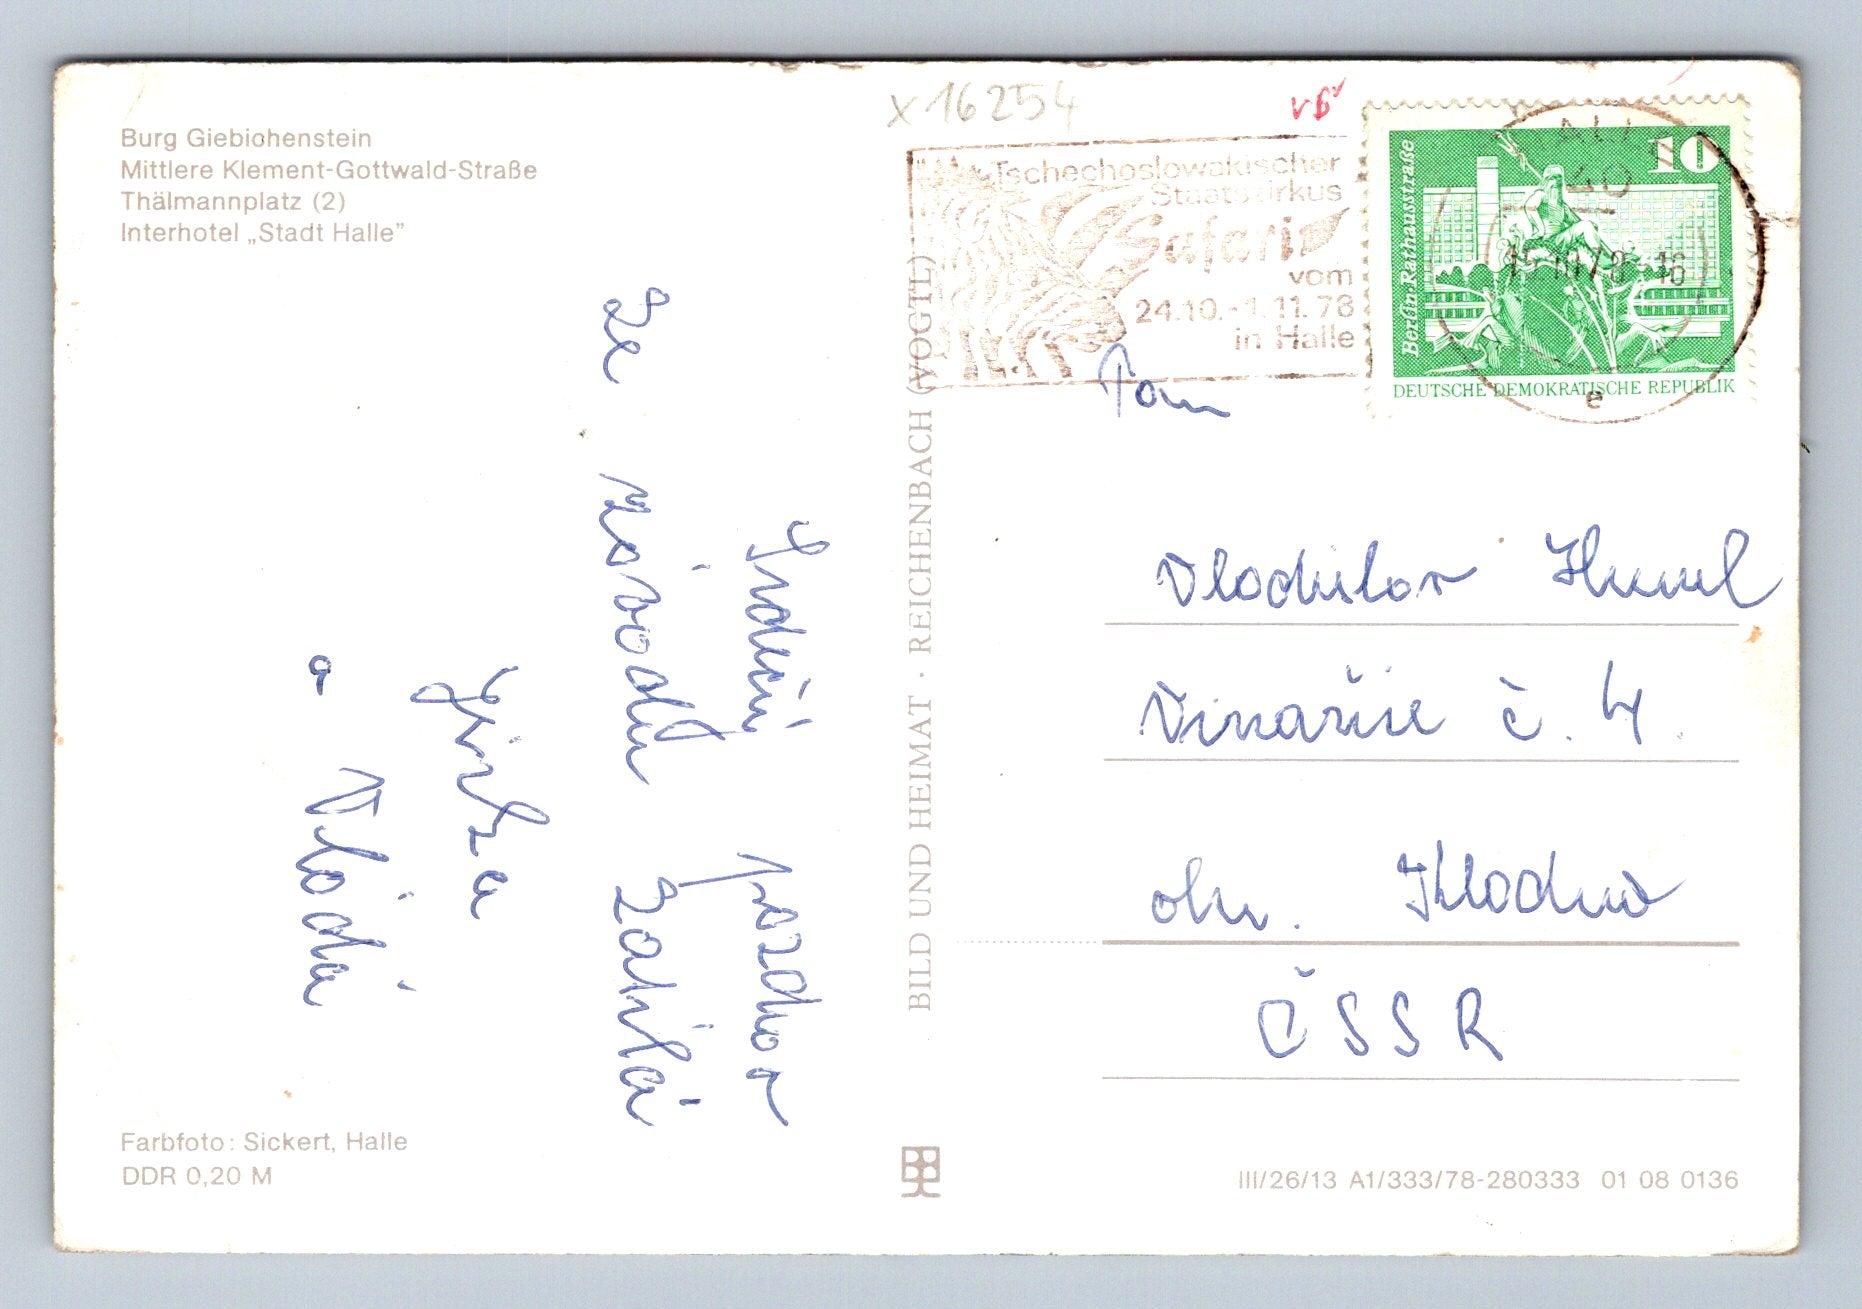 Burg Giebichenstein
Mittlere Klement-Gottwald-Straße
Thälmannplatz (2)
Interhotel „Stadt Halle”
Srdečný pozdrav
ze zájezdu zasílá
Jirka
a Vláďa
Farbfoto: Sickert, Halle
DDR 0,20 M
BILD UND HEIMAT · REICHENBACH (VOGTL)
X 16254
Tschechoslowakischer
Staatszirkus
Safari
vom
24.10.-1.11.78
in Halle
10
Berlin·Rathausstraße
DEUTSCHE DEMOKRATISCHE REPUBLIK
e
Pan
Vinařice č. 4.
okr. Kladno
ČSSR
III/26/13 A1/333/78-280333 01 08 0136